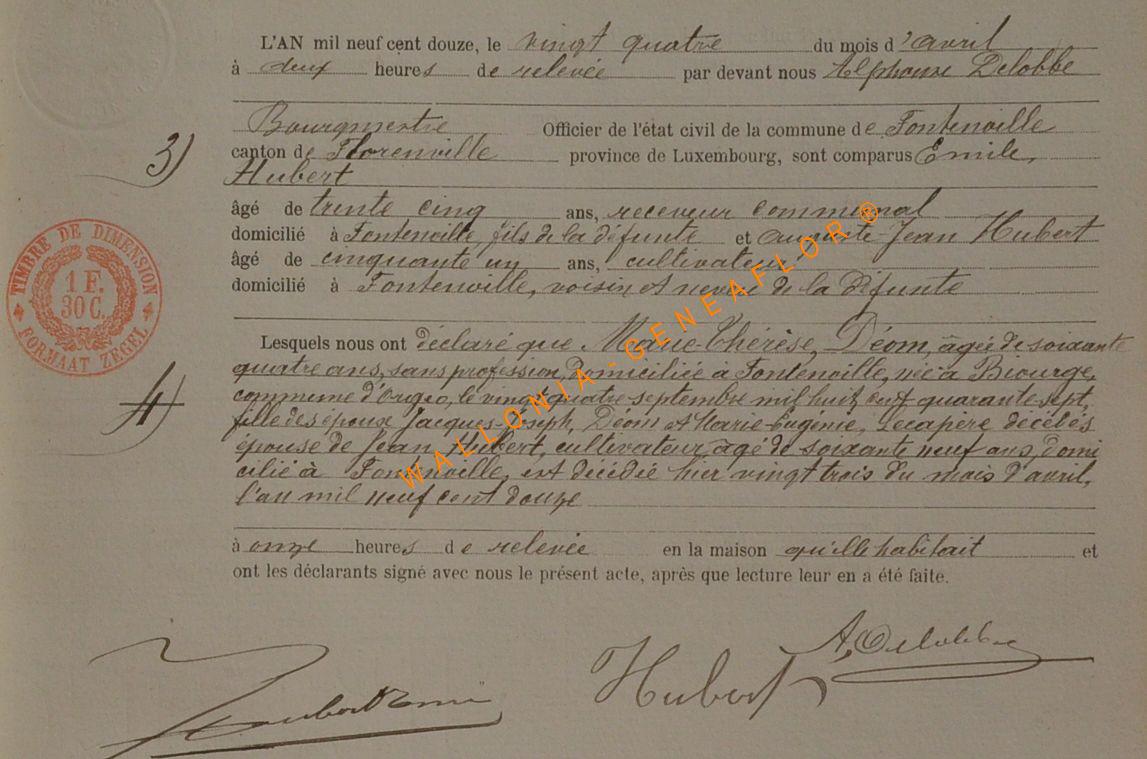 L'AN mil neuf cent douze, le vingt quatre du mois d'avril
à deux heures de relevée par devant nous Alphonse Delobbe
Bourgmestre Officier de l'état civil de la commune de Fontenoille
3)
canton de Florenville province de Luxembourg, sont comparus Emile,
Hubert
âgé de trente cinq ans, receveur communal
domicilié à Fontenoille, fils de la défunte et Auguste Jean Hubert
âgé de cinquante un ans, cultivateur
domicilié à Fontenoille, voisin et neveu de la défunte
TIMBRE DE DIMENSION
1 F.
30 C.
FORMAAT ZEGEL
WALLONIA - GENEAFLOR ®
Lesquels nous ont déclaré que Marie Thérèse, Déom, âgée de soixante
quatre ans, sans profession, domiciliée à Fontenoille, née à Biourge,
commune d'Orgeo, le vingt quatre septembre mil huit cent quarante sept,
4)
fille des époux Jacques Joseph, Déom et Marie Eugénie, décédés
épouse de Jean Hubert, cultivateur, âgé de soixante neuf ans, domi
cilié à Fontenoille, est décédée hier vingt trois du mois d'avril,
l'an mil neuf cent douze
à onze heures de relevée en la maison qu'elle habitait et
ont les déclarants signé avec nous le présent acte, après que lecture leur en a été faite.
A. Delobbe
Hubert